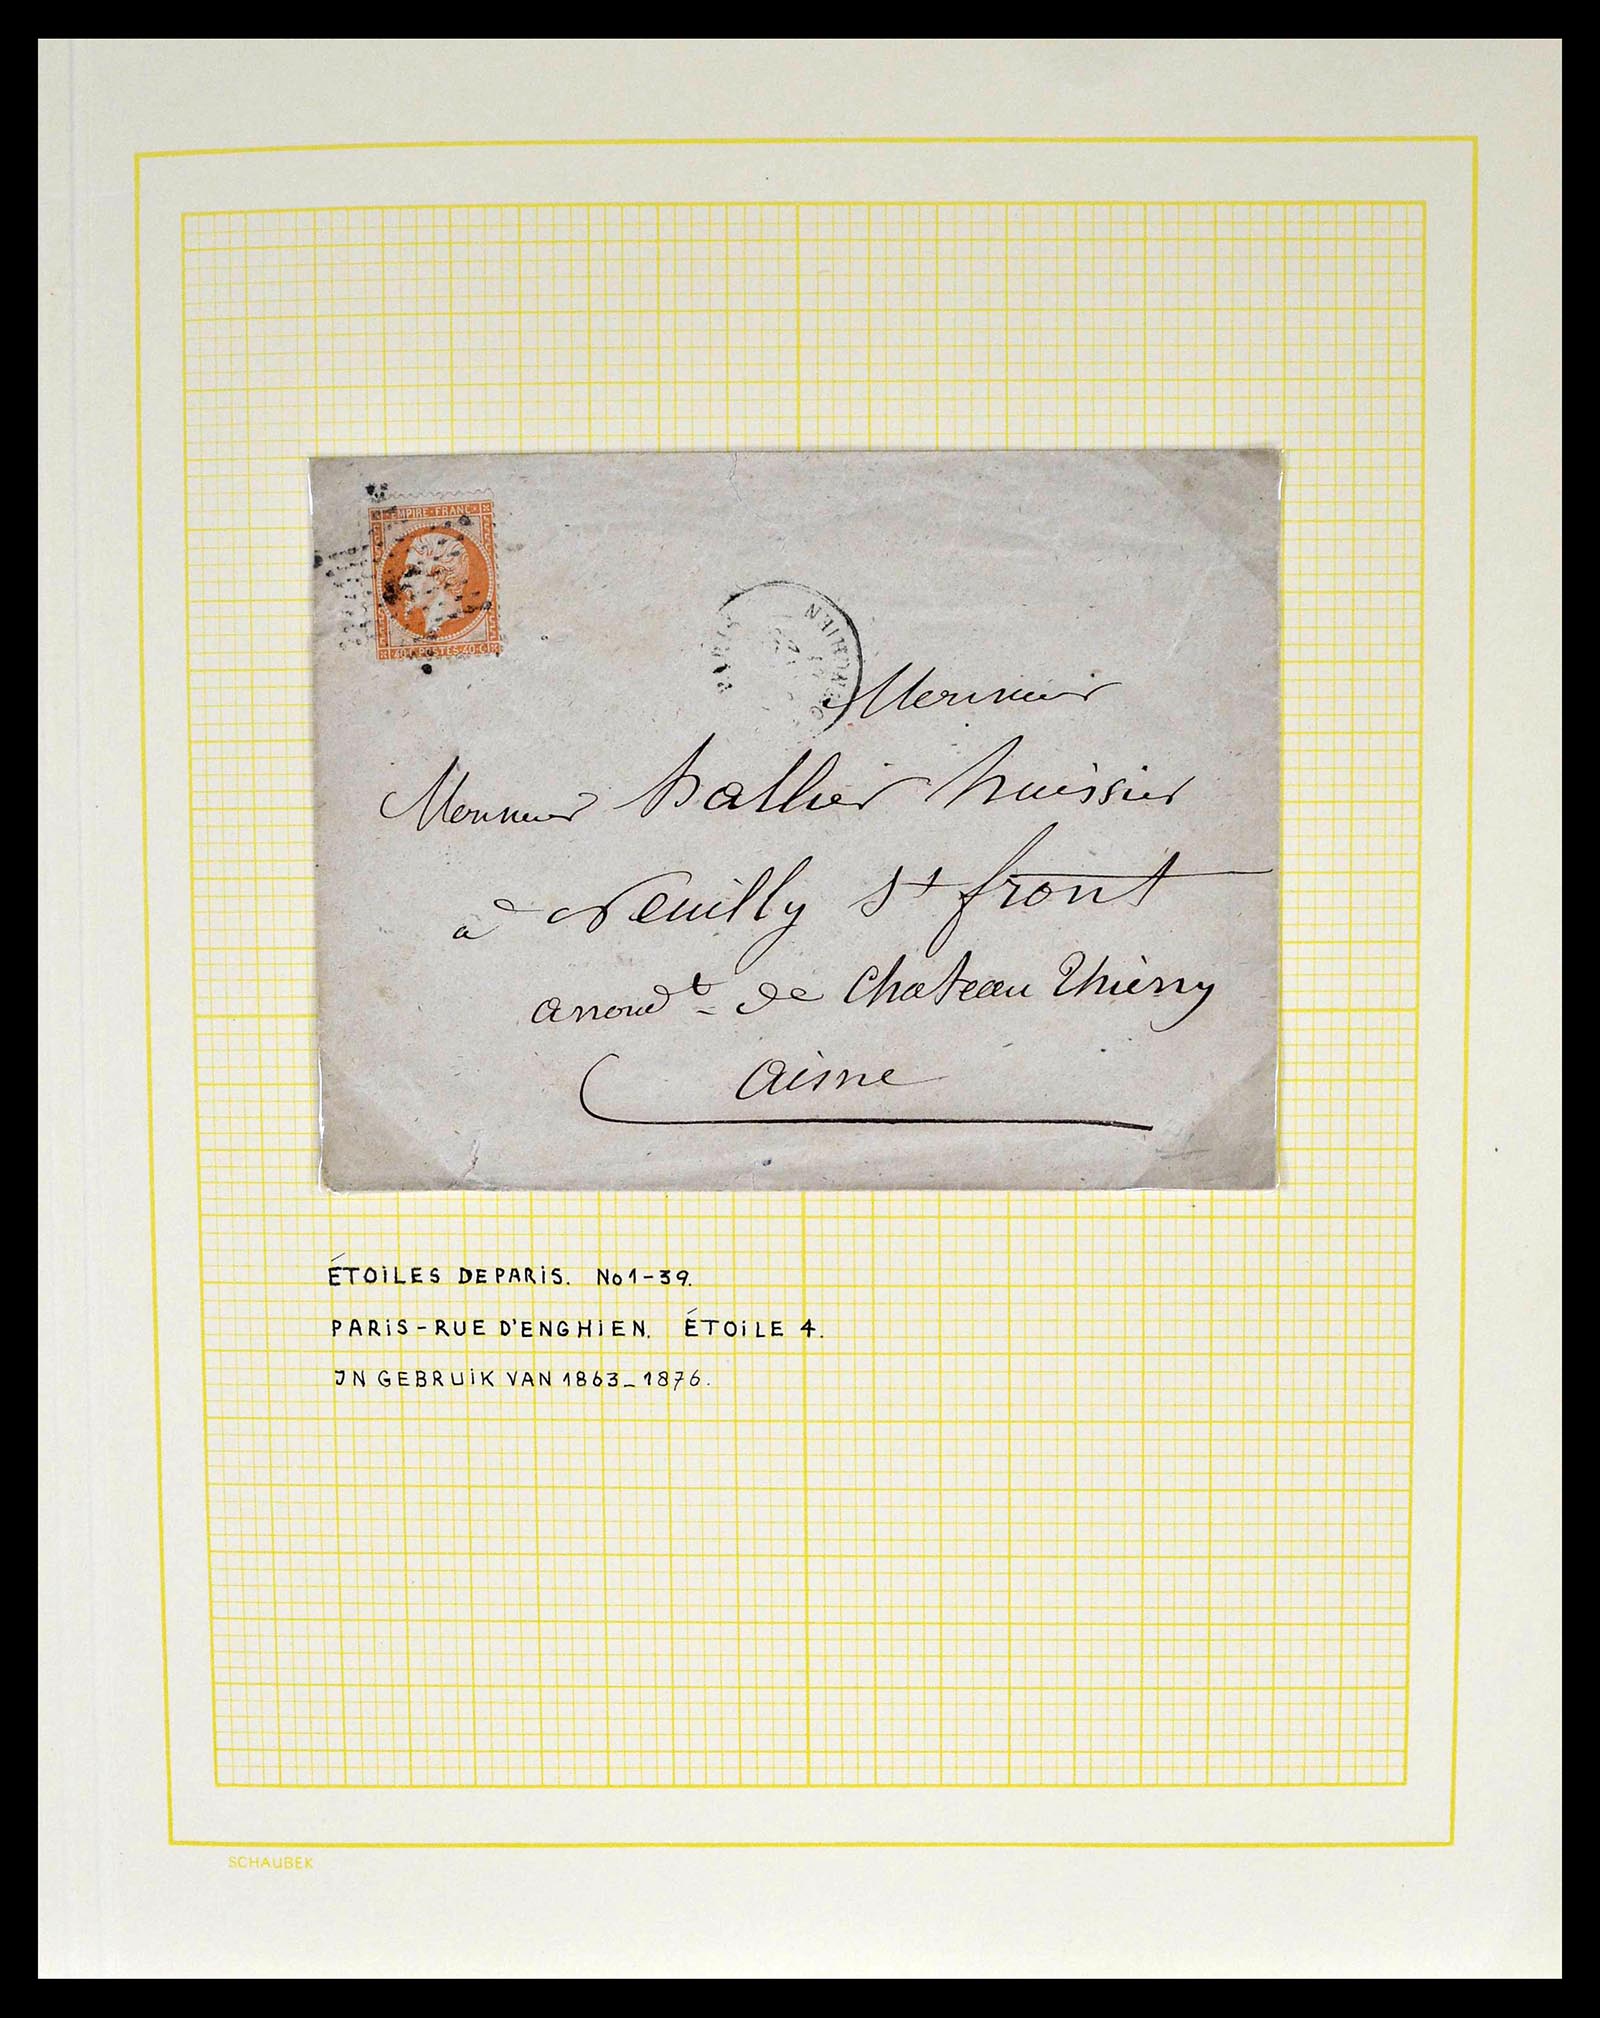 EMPIRE·FRANC·
40·C·POSTES·40·C
PARIS
D'ENGHIEN
Monsieur
Monsieur hallier huissier
a Neuilly St front
arrondt de Chateau Thierry
aisne
ÉTOILES DE PARIS. No 1-39.
PARIS-RUE D'ENGHIEN. ÉTOILE 4.
IN GEBRUIK VAN 1863_1876.
SCHAUBEK